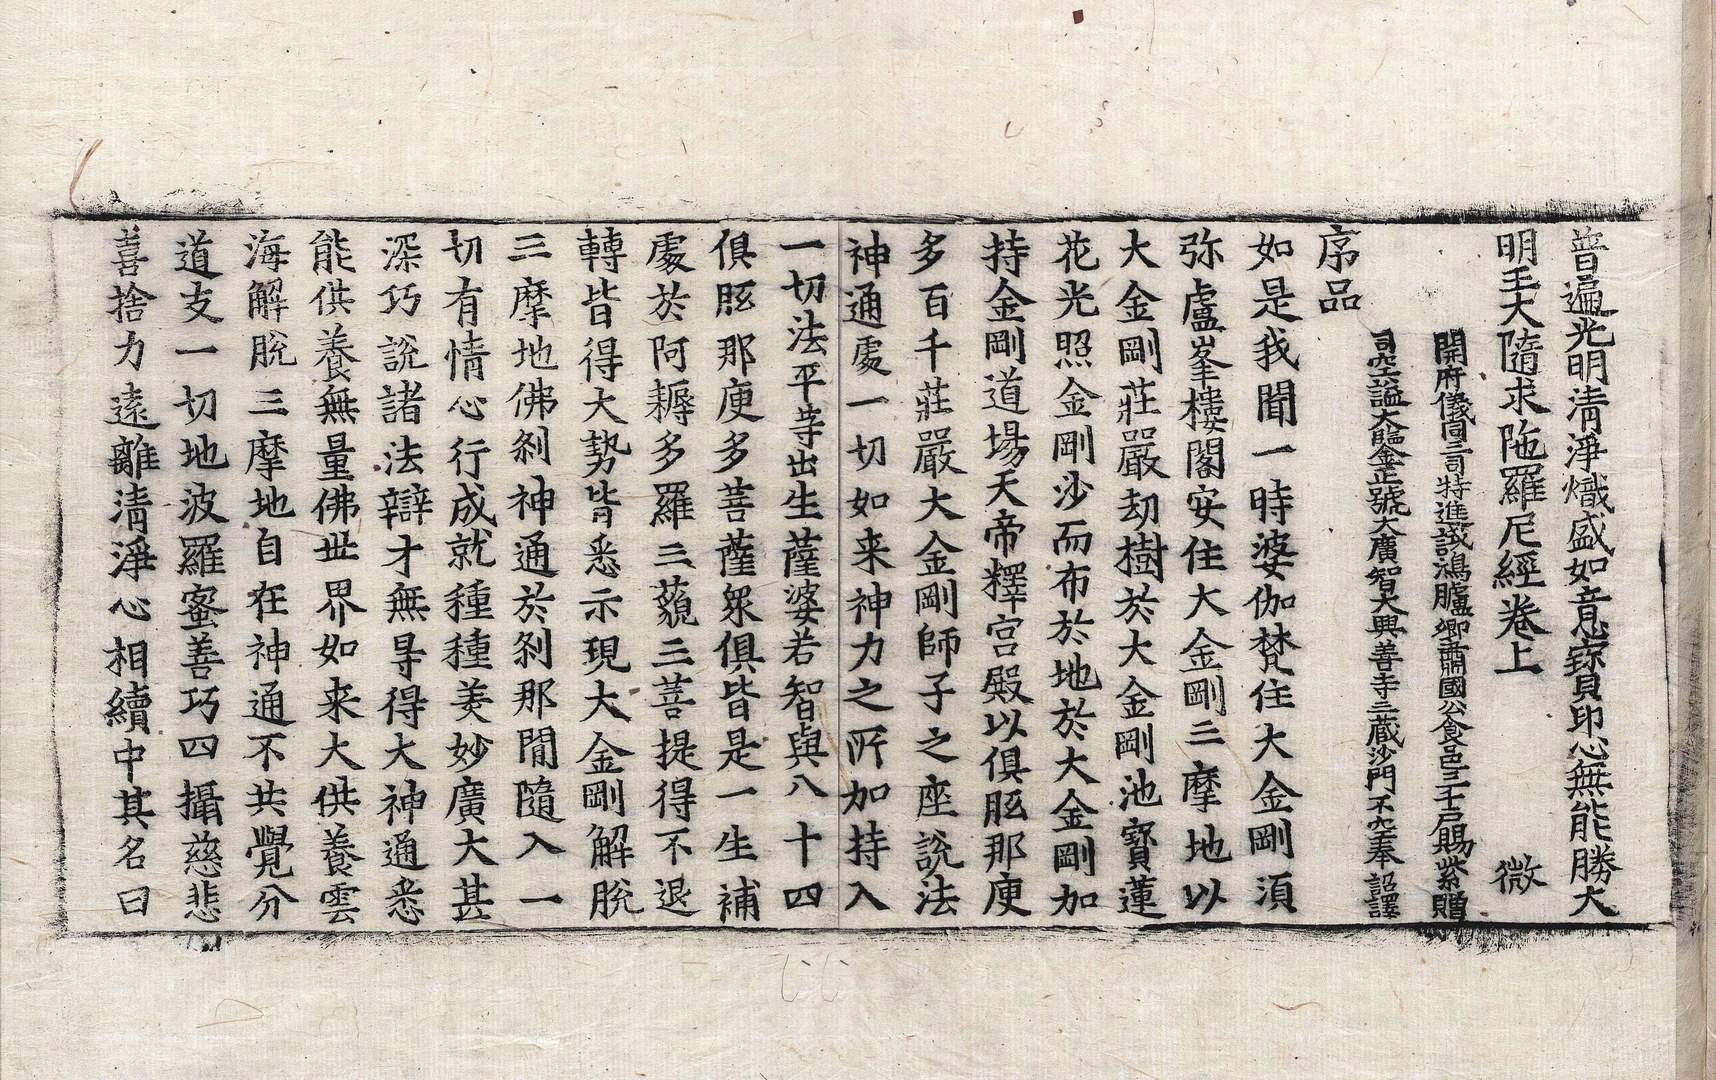 普遍光明清淨熾盛如意寶印心無能勝大
明王大隨求陁羅尼經卷上　微
開府儀同三司特進試鴻臚卿肅國公食邑三千戶賜紫贈
司空謚大鑑正號大廣智大興善寺三藏沙門不空奉 詔譯
序品
如是我聞一時婆伽梵住大金剛須
弥盧峯樓閣安住大金剛三摩地以
大金剛莊嚴劫樹於大金剛池寶蓮
花光照金剛沙而布於地於大金剛加
持金剛道場天帝釋宮殿以俱胝那庾
多百千莊嚴大金剛師子之座說法
神通處一切如来神力之所加持入
一切法平等出生薩婆若智與八十四
俱胝那庾多菩薩衆俱皆是一生補
處於阿耨多羅三藐三菩提得不退
轉皆得大勢皆悉示現大金剛解脫
三摩地佛剎神通於剎那間隨入一
切有情心行成就種種美妙廣大甚
深巧說諸法辯才無㝵得大神通悉
能供養無量佛世界如来大供養雲
海解脫三摩地自在神通不共覺分
道支一切地波羅蜜善巧四攝慈悲
喜捨力遠離清淨心相續中其名曰